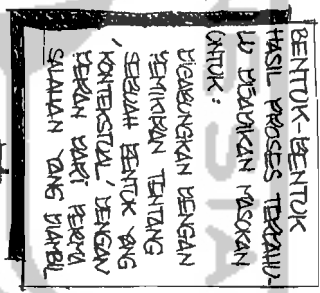 BENTUK-BENTUK
HASIL PROSES TERDAHU-
LU DIJADIKAN MASUKAN
UNTUK :
DIGABUNGKAN DENGAN
PEMIKIRAN TENTANG
SEBUAH BENTUK YANG
'KONTEKSTUAL' DENGAN
PERAN DARI PERMA
SALAHAN YANG DIAMBIL